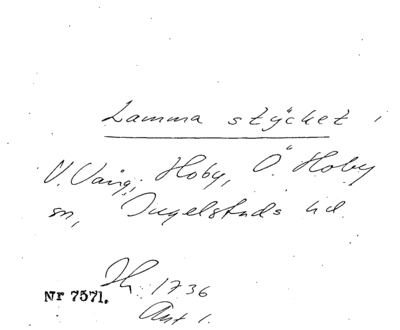 Lamma stÿcket i
V. Vång, Hoby, Ö. Hoby
sn, Ingelstads hd.
Nr 7571.
1736
Akt 1.